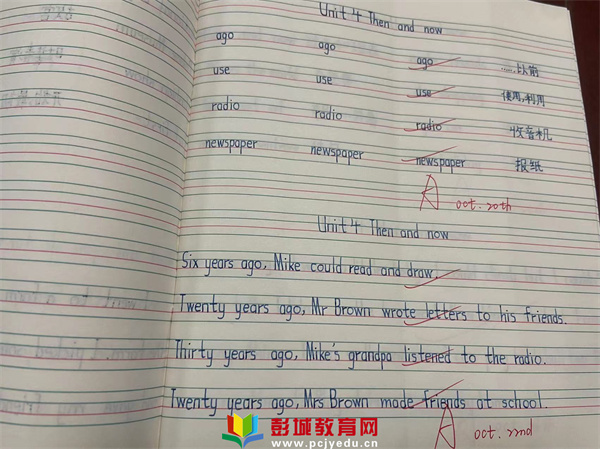 Unit 4 Then and now
ago ago ago ……以前
use use use 使用,利用
radio radio radio 收音机
newspaper newspaper newspaper 报纸
A oct. 20th
Unit 4 Then and now
Six years ago, Mike could read and draw.
Twenty years ago, Mr Brown wrote letters to his friends.
Thirty years ago, Mike's grandpa listened to the radio.
Twenty years ago, Mrs Brown made friends at school.
A oct. 22nd
彭城教育网
www.pcjyedu.cn